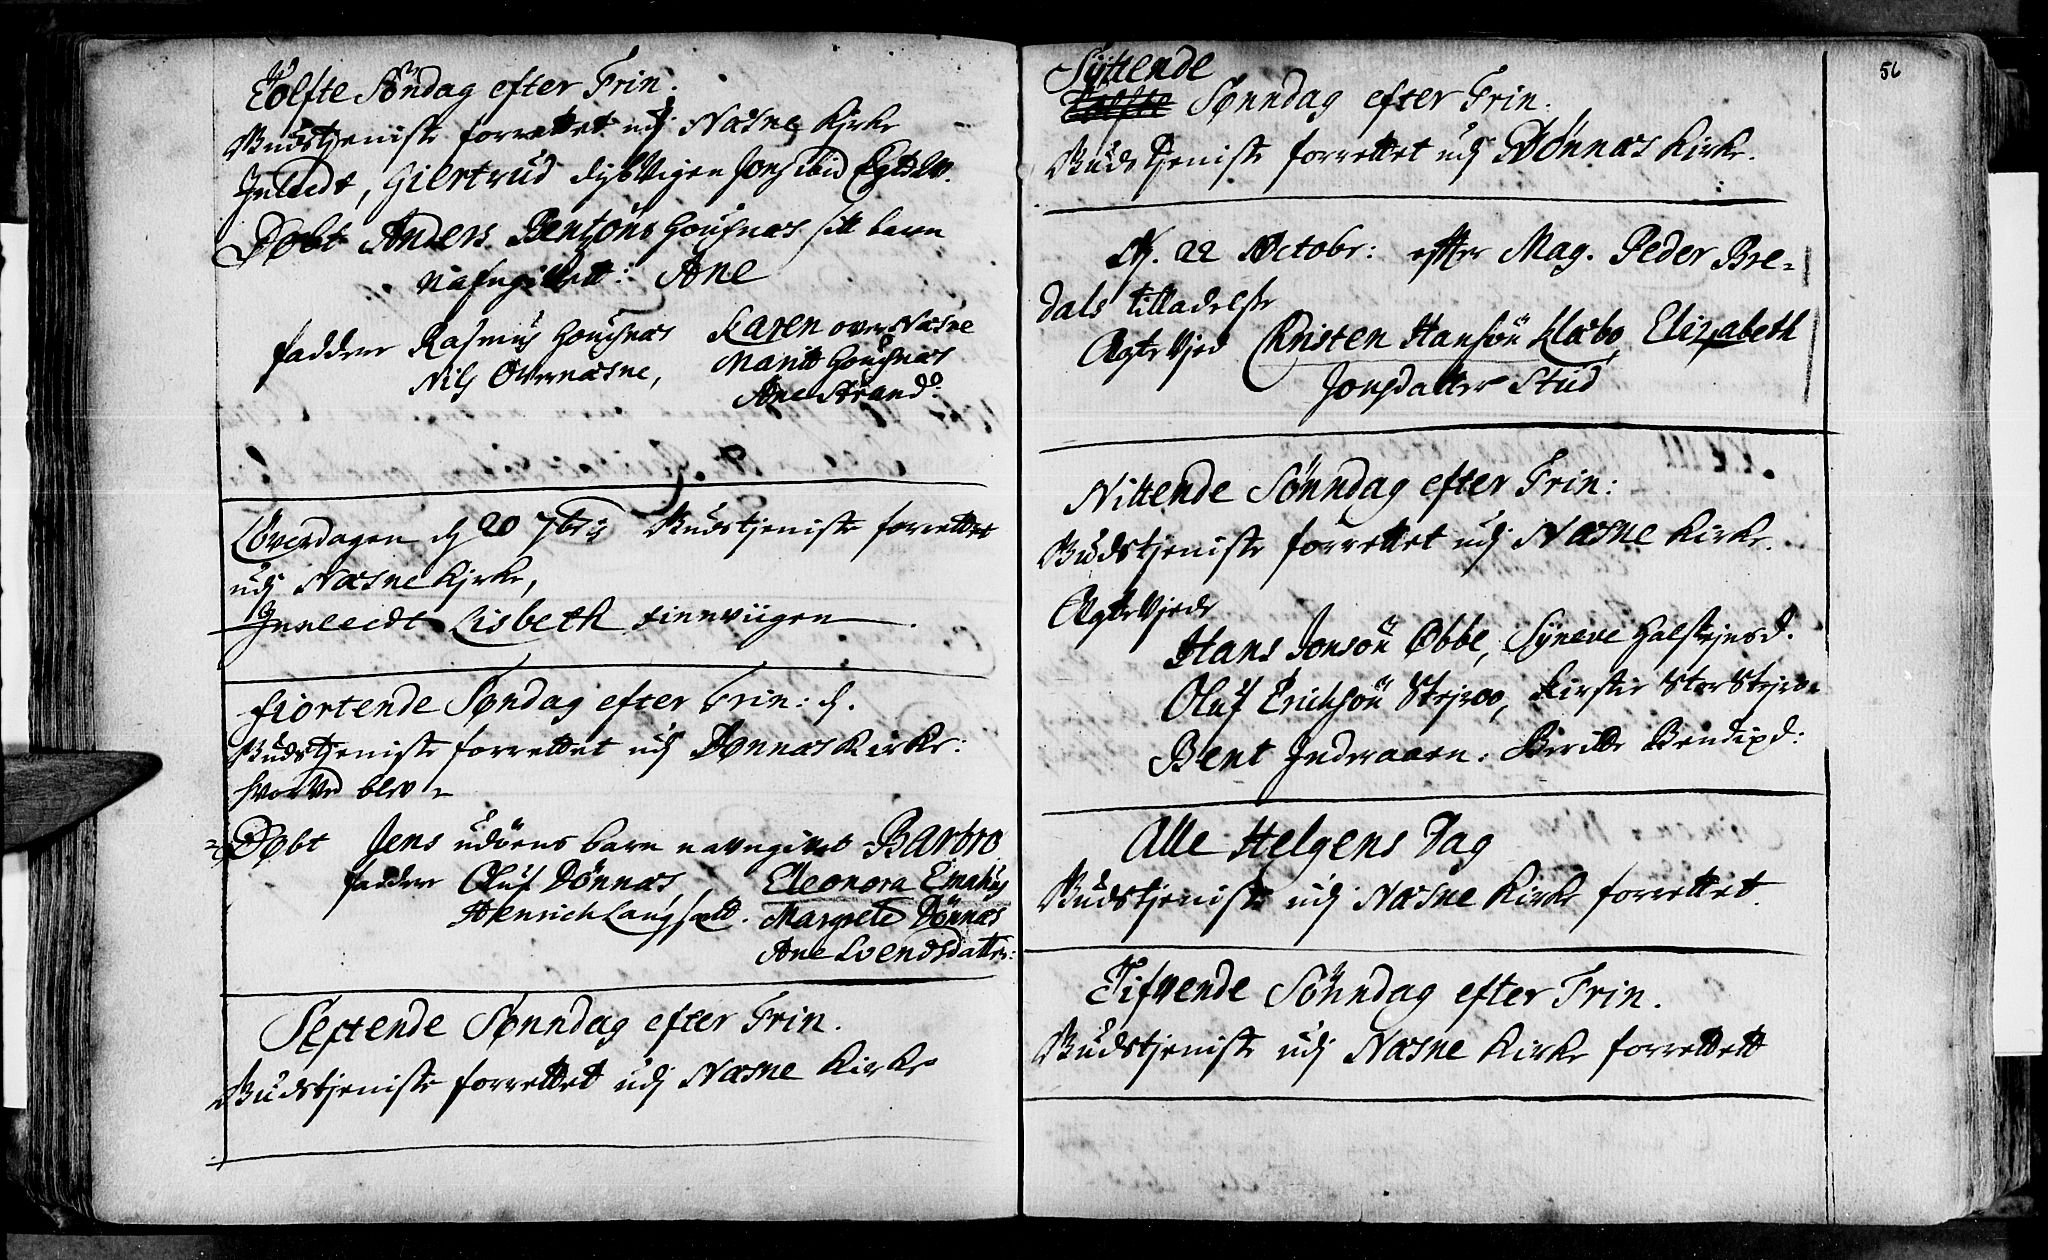 Tolfte Söndag efter Trin.
Gudstjeniste forrettet udj Næsne Kirke
Inleedt, Giertrud Dybvigen Jons ibid Egte W.
Döbt Anders Bentsöns Housnæs sitt barn
nafngivett: Ane
fadder Rasmus Housnæs Karen over Næsne
Nils Overnæsne, Maritt Housnæs
Ane Strand
Löverdagen d 20 7bris Gudstjeniste forrettet
udj Næsne Kirke,
Inleedt Lisbeth Finnviigen
fiortende Söndag efter Trin: d.
Gudstjeniste forrettet udj Dönnæs Kirke:
hvorved blev
Döbt Jens udöens barn navngivet Barbro
fadder Oluf Dönnæs, Eleonora Emahus
Henrich Langsætt. Margrete Dönnæs
Ane Svendsdatter:
Sextende Sönndag efter Trin.
Gudstjeniste forrettet udj Næsne Kirke
56
Syttende
Tolfte Sönndag efter Trin.
Guds Tjeniste forrettet udj Dönnæs Kirke.
D. 22 Octobr: efter Mag. Peder Bre-
dals tilladelse
Ægte Vjed Christen Hansön Klæbo, Elizabeth
Jonsdatter Stud
Nittende Sönndag efter Trin:
Gudstjeniste forrettet udj Næsne Kirke.
Ægte Vjede
Hans Jonsön Ebbe, Syneve Halstejnsd.
Oluf Erichsön Stejroo, Kirstie Stor Stejroe
Bent Inderaaen. Beritte Bendixd:
Alle Helgens Dag
Gudstjeniste udj Næsne Kirke forrettet.
Tifvende Sönndag efter Trin.
Gudstjeniste udj Næsne Kirke forrettett